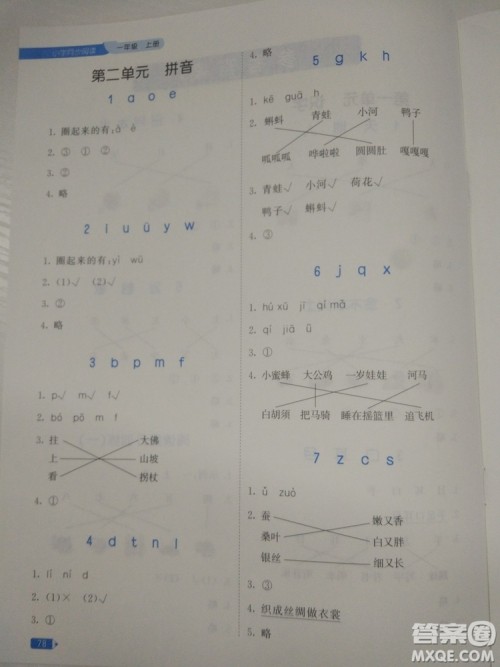 小学同步阅读 一年级 上册
第二单元 拼音
1 ɑ o e
1. 圈起来的有：
2. ③ ① ②
3. ②
4. 略
2 i u ü y w
1. 圈起来的有：yí wū
2. (1)√ (2)√
3. ②
4. 略
3 b p m f
1. p√ m√ f√
2. bá pó mō
3. 拄 大佛
上 山坡
看 拐杖
4. ①
4 d t n l
1.
2. (1)× (2)√
3. ①
78
4. 略
5 g k h
1. kē guā hé
2. 蝌蚪 青蛙 小河 鸭子
呱呱呱 哗啦啦 圆圆肚 嘎嘎嘎
3. 青蛙√ 小河√ 荷花√
鸭子√ 蝌蚪√
4. ③
6 j q x
1.
2. qí jiā xū
3. ②
4. 小蜜蜂 大公鸡 一岁娃娃 河马
白胡须 把马骑 睡在摇篮里 追飞机
7 z c s
1.
2. 蚕 嫩又香
桑叶 白又胖
银丝 细又长
3. ③
4. 织成丝绸做衣裳
5. 略
答案圈
MXQE.COM